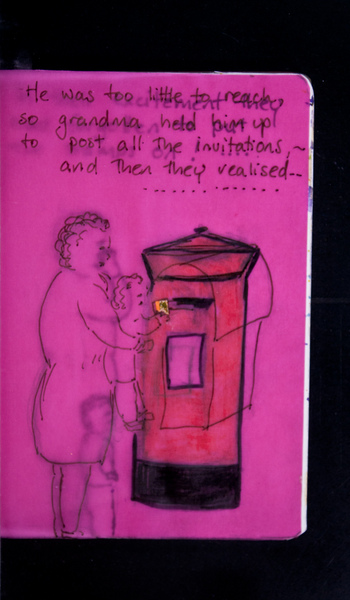 He was too little to reach
so grandma held him up
to post all the invitations,~
and then they realised--